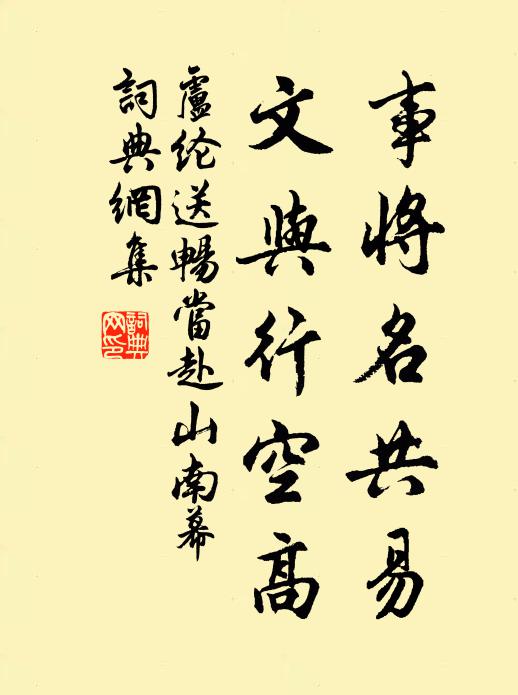 事將名共易
文與行空高
盧纶送暢當赴山南幕
詞典網集
詞典網印